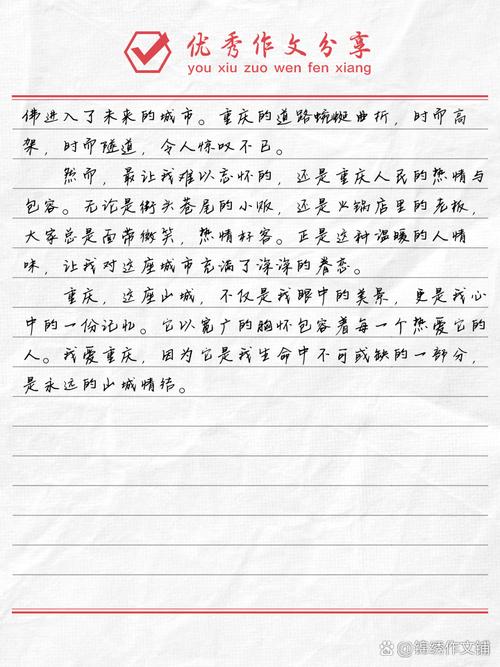 优秀作文分享
you xiu zuo wen fen xiang
佛进入了未来的城市。重庆的道路蜿蜒曲折，时而高
架，时而隧道，令人惊叹不已。
然而，最让我难以忘怀的，还是重庆人民的热情与
包容。无论是街头巷尾的小贩，还是火锅店里的老板，
大家总是面带微笑，热情待客。正是这种温暖的人情
味，让我对这座城市充满了深深的眷恋。
重庆，这座山城，不仅是我眼中的美景，更是我心
中的一份记忆。它以宽广的胸怀包容着每一个热爱它的
人。我爱重庆，因为它是我生命中不可或缺的一部分，
是永远的山城情结。
锦绣作文铺